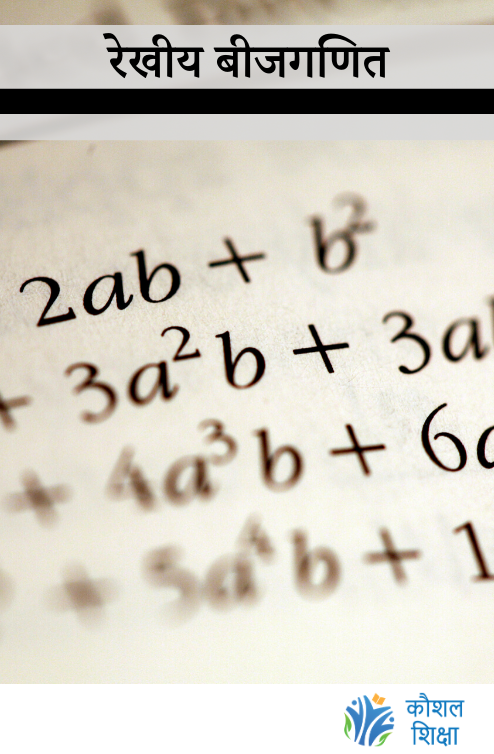 रेखीय बीजगणित
2ab + b²
+ 3a²b + 3a
+ 4a³b + 6
+ 5a⁴b + 1
कौशल
शिक्षा